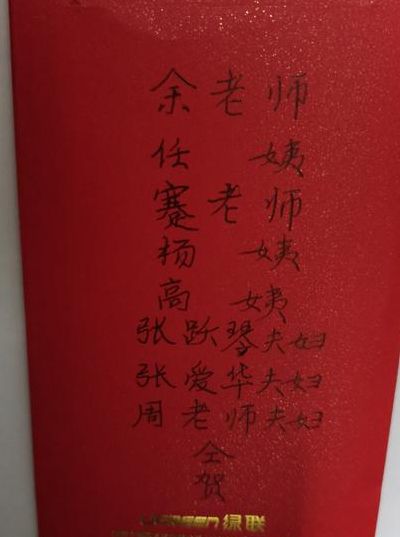 余老师
任姨
蹇老师
杨姨
高姨
张跃琴夫妇
张爱华夫妇
周老师夫妇
仝贺
UGREEN绿联